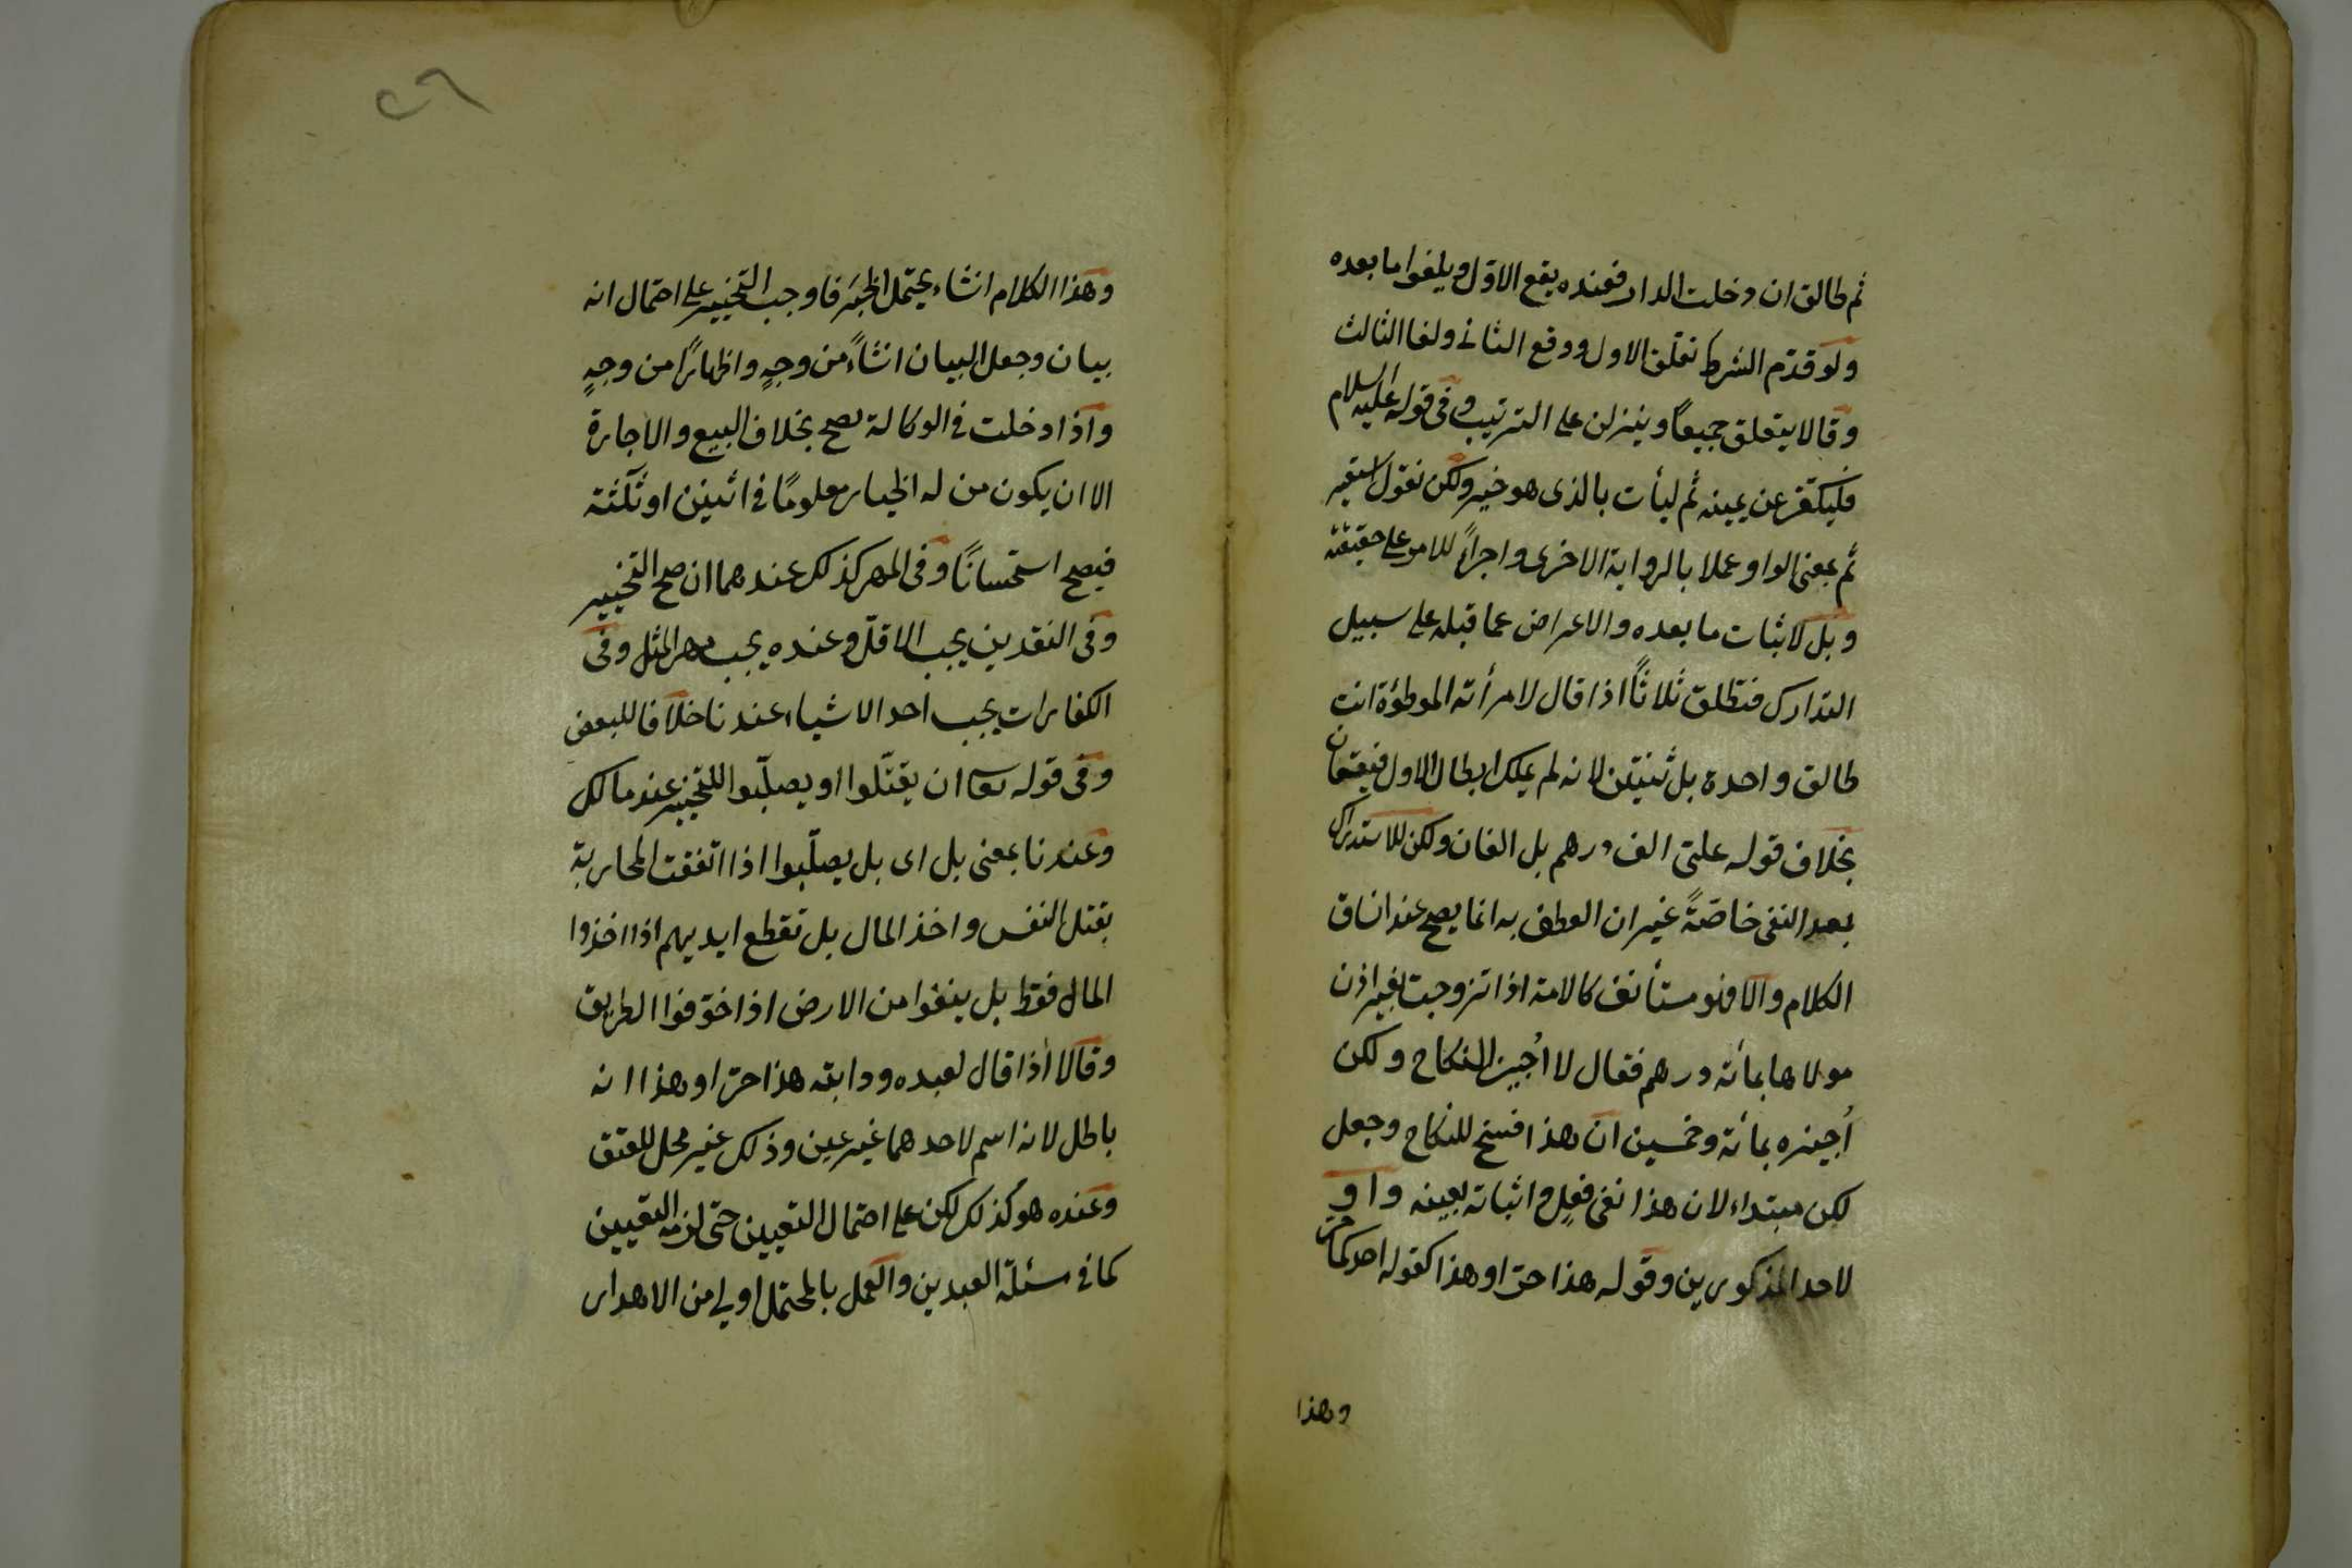 ثم طالق ان دخلت الدار فعنده يقع الاوّل ويلغوا ما بعده
ولو قدّم الشرط تعلّق الاول ووقع الثانى ولغا الثالث
وقالا يتعلق جميعًا وينزلن على الترتيب وفى قوله عليه السلام
فليكفّر عن يمينه ثم ليأت بالذى هو خير ولكن نقول استعير
ثم بمعنى الواو عملا بالرواية الاخرى واجراءً للامر على حقيقته
وبل لاثبات ما بعده والاعراض عما قبله على سبيل
التدارك فتطلق ثلاثًا اذا قال لامرأته الموطوءة انت
طالق واحدة بل ثنيتن لانه لم يملك ابطال الاول فيقعان
بخلاف قوله علىّ الف درهم بل الفان ولكن للاستدراك
بعد النفى خاصّةً غير ان العطف به انما يصح عند اتساق
الكلام والا فهو مستأنف كالامة اذا تزوجت بغير اذن
مولاها بمائة درهم فقال لا اُجيز النكاح ولكن
اُجيزه بمائة وخمسين ان هذا فسخ للنكاح وجعل
لكن مبتداء لان هذا نفى فعلٍ واثباته بعينه واو
لاحد المذكورين وقوله هذا حرّ او هذا كقوله احدكما حرّ
وهذا
٢٦
وهذا الكلام انشاء يحتمل الخبَر فاوجب التخيير على احتمال انه
بيان وجعل البيان انشاءً من وجهٍ واظهارًا من وجهٍ
واذا دخلت فى الوكالة يصح بخلاف البيع والاجارة
الا ان يكون من له الخيار معلومًا فى اثنين او ثلثة
فيصح استحسانًا وفى المهر كذلك عندهما ان صح التخيير
وفى النقدين يجب الاقلّ وعنده يجب مهر المثل وفى
الكفارات يجب احد الاشياء عندنا خلافا للبعض
وفى قوله تعا ان يقتّلوا او يصلّبوا للتخيير عند مالك
وعندنا بمعنى بل اى بل يصلّبوا اذا اتفقت المحاربة
بقتل النفس واخذ المال بل تقطع ايديهم اذا اخذوا
المال فقط بل ينفوا من الارض اذا خوّفوا الطريق
وقالا اذا قال لعبده ودابته هذا حرّ او هذا انه
باطل لانه اسم لاحدهما غير عين وذلك غير محل للعتق
وعنده هو كذلك لكن على احتمال التعيين حتى لزمه التعيين
كما فى مسئلة العبدين والعمل بالمحتمل اولى من الاهدار